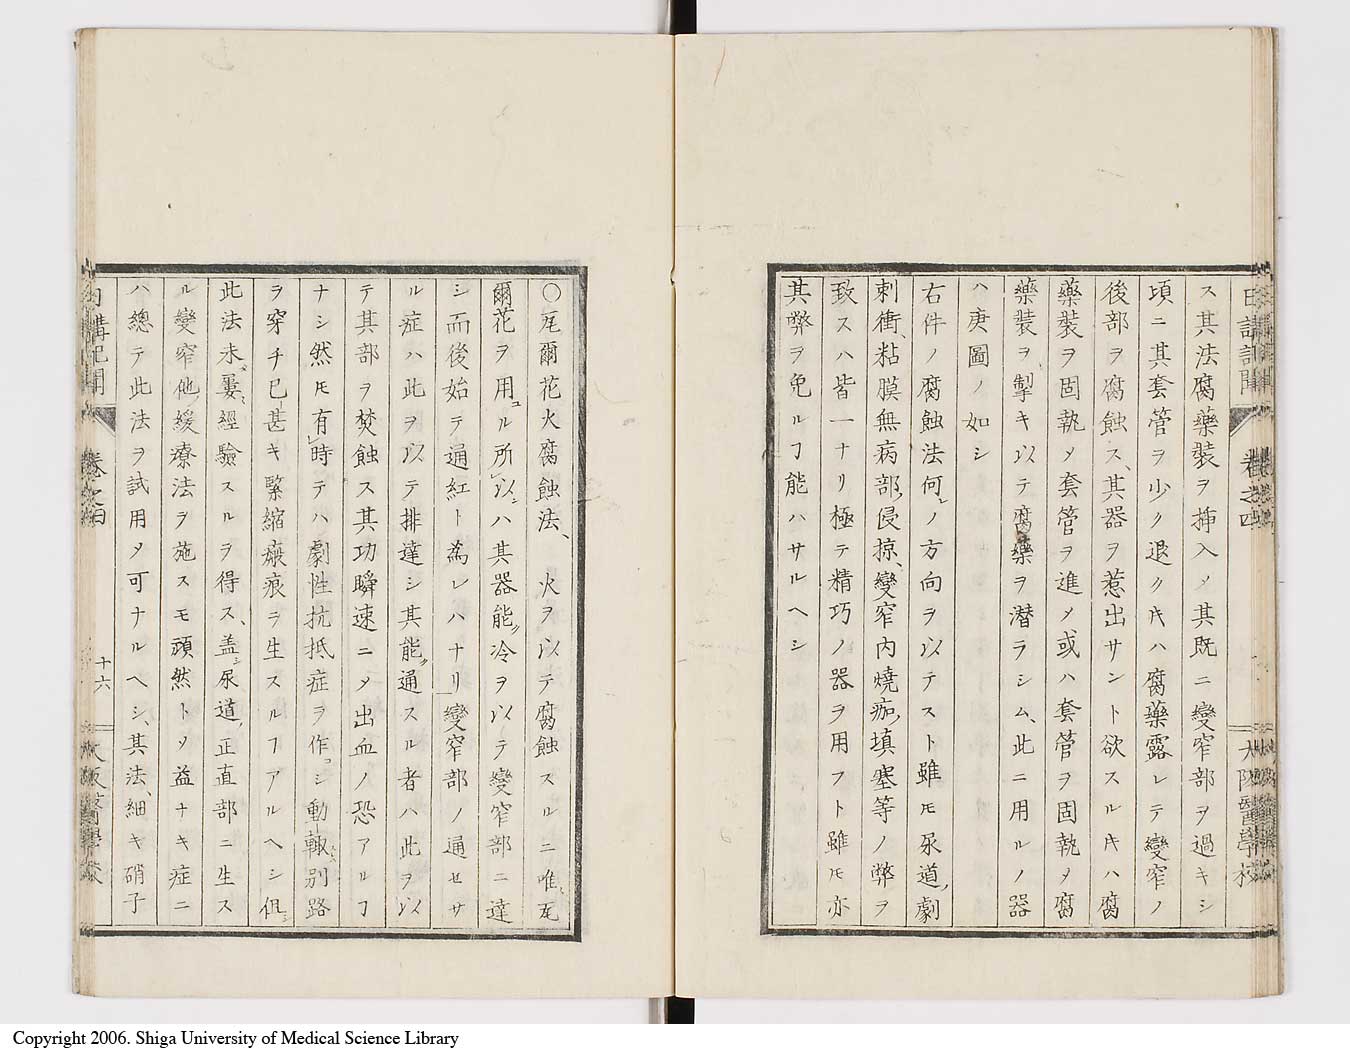 日講記聞 卷之四 大阪醫學校
ス其法腐藥裝ヲ挿入メ其既ニ變窄部ヲ過キシ
頃ニ其套管ヲ少ク退クキハ腐藥露レテ變窄ノ
後部ヲ腐蝕ス、其器ヲ惹出サント欲スルキハ腐
藥裝ヲ固執メ套管ヲ進メ或ハ套管ヲ固執メ腐
藥裝ヲ掣キ以テ腐藥ヲ潜ラシム、此ニ用ルノ器
ハ庚圖ノ如シ
右件ノ腐蝕法何レノ方向ヲ以テスト雖モ尿道ノ劇
刺衝、粘膜無病部ノ侵掠、變窄内燒痂ノ填塞等ノ弊ヲ
致スハ皆一ナリ極テ精巧ノ器ヲ用フト雖モ亦
其弊ヲ免ルヿ能ハサルヘシ
〇瓦爾花火腐蝕法、 火ヲ以テ腐蝕スルニ唯瓦
爾花ヲ用ユル所以ハ其器能ク冷ヲ以テ變窄部ニ達
シ而後始テ通紅ト為レハナリ變窄部ノ通セサ
ル症ハ此ヲ以テ排達シ其能ク通スル者ハ此ヲ以
テ其部ヲ焚蝕ス其功瞬速ニメ出血ノ恐アルヿ
ナシ然モ有時テハ劇性抗抵症ヲ作コシ動輙別路
ヲ穿チ已甚キ緊縮瘢痕ヲ生スルヿアルヘシ但シ
此法未屢經驗スルヲ得ス、盖シ尿道ノ正直部ニ生ス
ル變窄他ノ緩療法ヲ施スモ頑然トメ益ナキ症ニ
ハ總テ此法ヲ試用メ可ナルヘシ、其法、細キ硝子
日講記聞 卷之四 十六 大阪醫學校